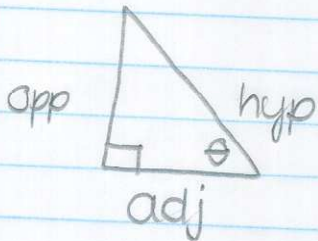 opp
hyp
θ
adj